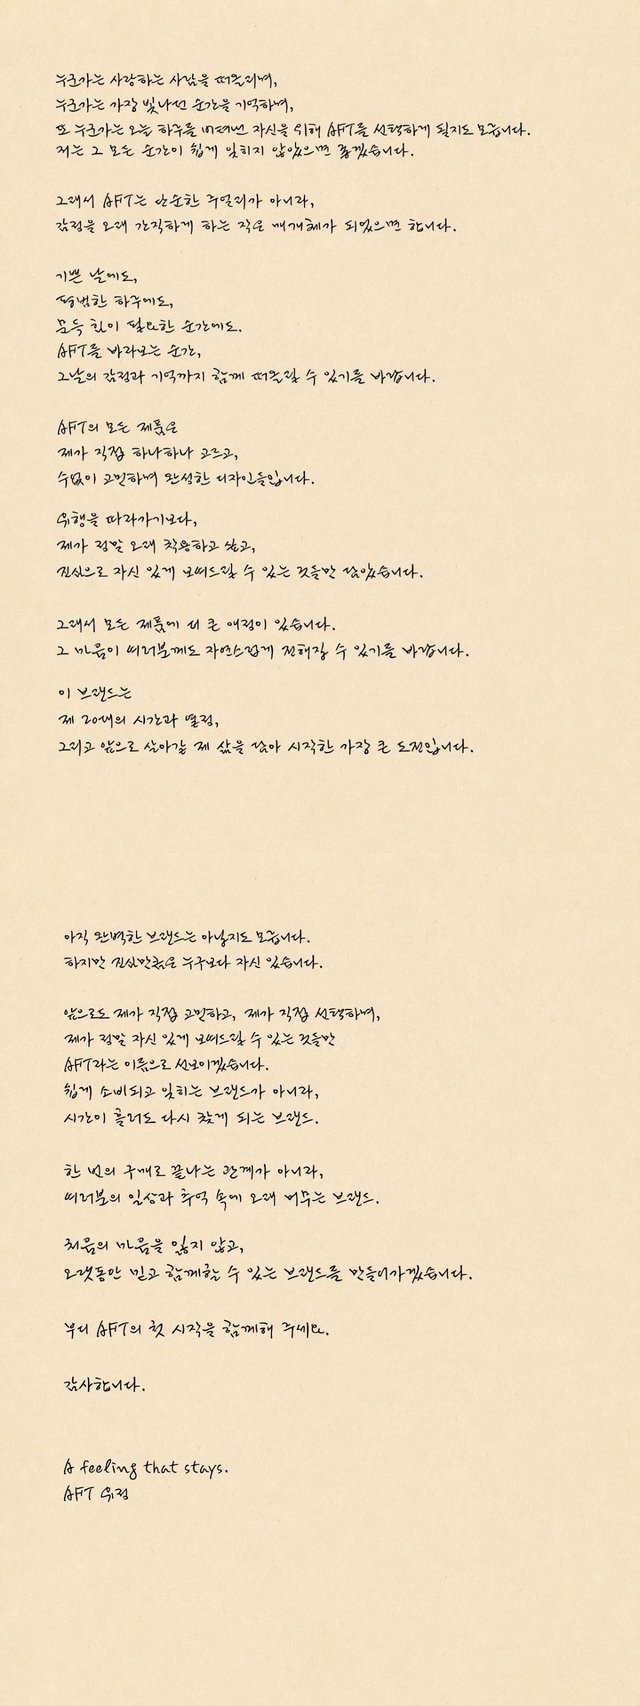 누군가는 사랑하는 사람을 떠올리며,
누군가는 가장 빛나던 순간을 기억하며,
또 누군가는 오늘 하루를 버텨낸 자신을 위해 AFT를 선택하게 될지도 모릅니다.
저는 그 모든 순간이 쉽게 잊히지 않았으면 좋겠습니다.
그래서 AFT는 단순한 주얼리가 아니라,
감정을 오래 간직하게 하는 작은 매개체가 되었으면 합니다.
기쁜 날에도,
평범한 하루에도,
문득 힘이 필요한 순간에도.
AFT를 바라보는 순간,
그날의 감정과 기억까지 함께 떠올릴 수 있기를 바랍니다.
AFT의 모든 제품은
제가 직접 하나하나 고르고,
수없이 고민하며 완성한 디자인들입니다.
유행을 따라가기보다,
제가 정말 오래 착용하고 싶고,
진심으로 자신 있게 보여드릴 수 있는 것들만 담았습니다.
그래서 모든 제품에 더 큰 애정이 있습니다.
그 마음이 여러분께도 자연스럽게 전해질 수 있기를 바랍니다.
이 브랜드는
제 20대의 시간과 열정,
그리고 앞으로 살아갈 제 삶을 담아 시작한 가장 큰 도전입니다.
아직 완벽한 브랜드는 아닐지도 모릅니다.
하지만 진심만큼은 누구보다 자신 있습니다.
앞으로도 제가 직접 고민하고, 제가 직접 선택하며,
제가 정말 자신 있게 보여드릴 수 있는 것들만
AFT라는 이름으로 선보이겠습니다.
쉽게 소비되고 잊히는 브랜드가 아니라,
시간이 흘러도 다시 찾게 되는 브랜드.
한 번의 구매로 끝나는 관계가 아니라,
여러분의 일상과 추억 속에 오래 머무는 브랜드.
처음의 마음을 잃지 않고,
오랫동안 믿고 함께할 수 있는 브랜드를 만들어가겠습니다.
부디 AFT의 첫 시작을 함께해 주세요.
감사합니다.
A feeling that stays.
AFT 유정